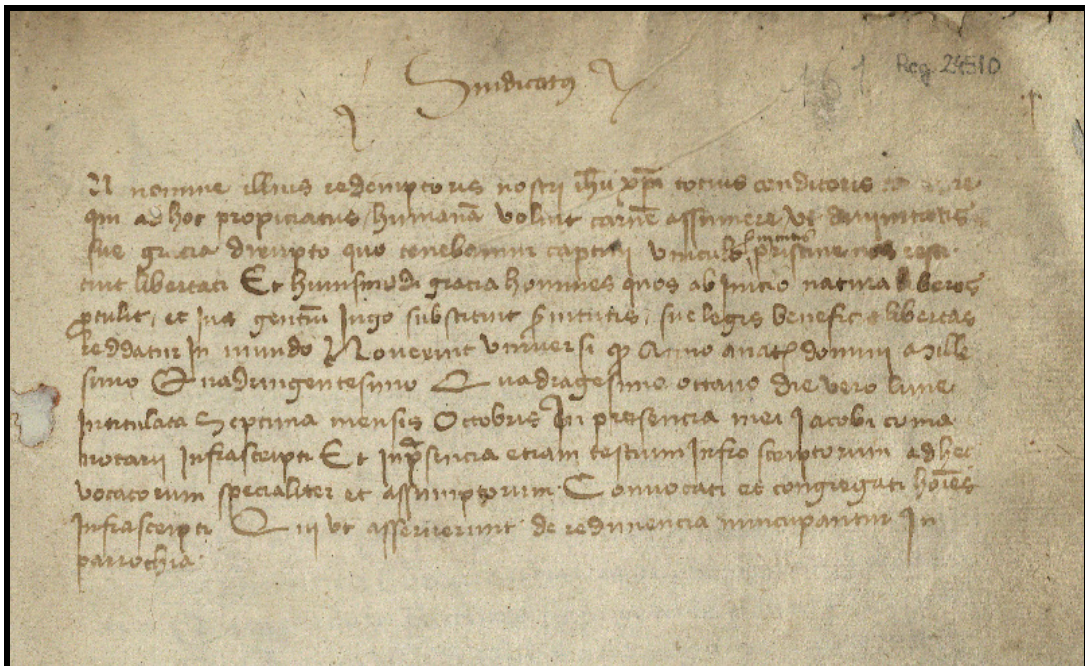 Sindicatus
Reg. 24510
N nomine illius redemptoris nostri ihu xpi totius conditoris
qui ad hoc propiciatus humanā voluit carnē assumere ut divinitatis
sue gracia dirupto quo tenebamur captivi vinculo pristine nos resti
tuit libertati Et huiusmodi gracia homines quos ab inicio natura liberos
protulit, et ius genciū iugo substituit s'vitutis, sue legis beneficio libertas
reddatur In mundo Noverint universi qp Anno a natē domini Mille
simo Quadringentesimo Quadragesimo octavo die vero lune
Intitulata Septima mensis Octobris In presencia mei Jacobi coma
notarii Infrascripti Et in p'sencia etiam testium Infrascriptorum ad hec
vocatorum specialiter et assumptorum Convocati et congregati hoīes
Infrascripti Qui ut asseruerunt de redimencia nuncupantur In
parrochia